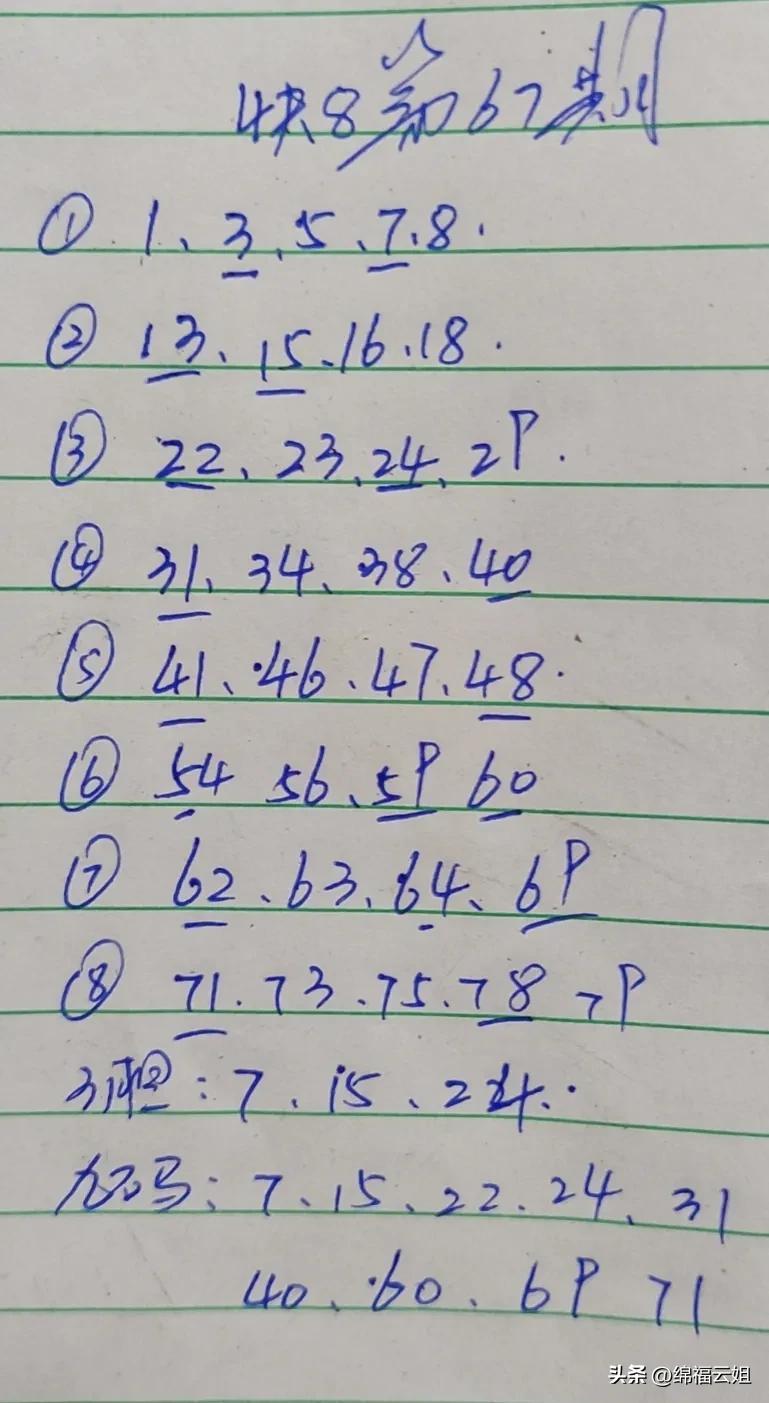 快8第67期
① 1、3、5、7.8.
② 13、15.16.18.
③ 22、23、24、29.
④ 31、34、38、40
⑤ 41、46、47、48.
⑥ 54 56、59 60
⑦ 62、63、64、69
⑧ 71.73.75.78 79
引胆：7、15、24.
九码：7、15、22.24、31
40、60、69 71
头条 @绵福云姐